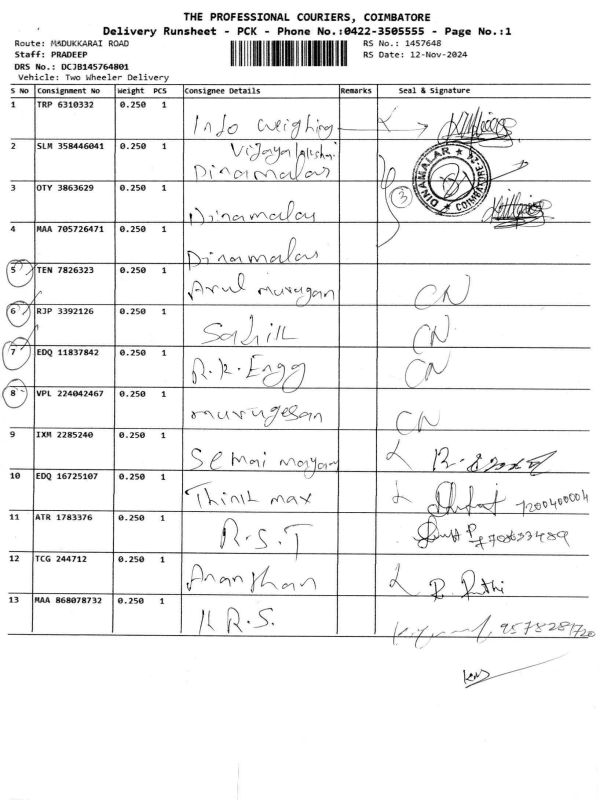 THE PROFESSIONAL COURIERS, COIMBATORE
Delivery Runsheet - PCK - Phone No.:0422-3505555 - Page No.:1
Route: MADUKKARAI ROAD RS No.: 1457648
Staff: PRADEEP RS Date: 12-Nov-2024
DRS No.: DCJB145764801
Vehicle: Two Wheeler Delivery
S No Consignment No Weight PCS Consignee Details Remarks Seal & Signature
1 TRP 6310332 0.250 1 Info weighing
2 SLM 358446041 0.250 1 Vijayalakshmi
Dinamalar
DINAMALAR ★ COIMBATORE
3 OTY 3863629 0.250 1 Dinamalar 3
4 MAA 705726471 0.250 1 Dinamalar
5 TEN 7826323 0.250 1 Arul murugan CN
6 RJP 3392126 0.250 1 CN
7 EDQ 11837842 0.250 1 R.K. Engg CN
8 VPL 224042467 0.250 1 murugesan CN
9 IXM 2285240 0.250 1
10 EDQ 16725107 0.250 1 Think max 7200400004
11 ATR 1783376 0.250 1 R.S.T
12 TCG 244712 0.250 1 Ananthan
13 MAA 868078732 0.250 1 K R.S.